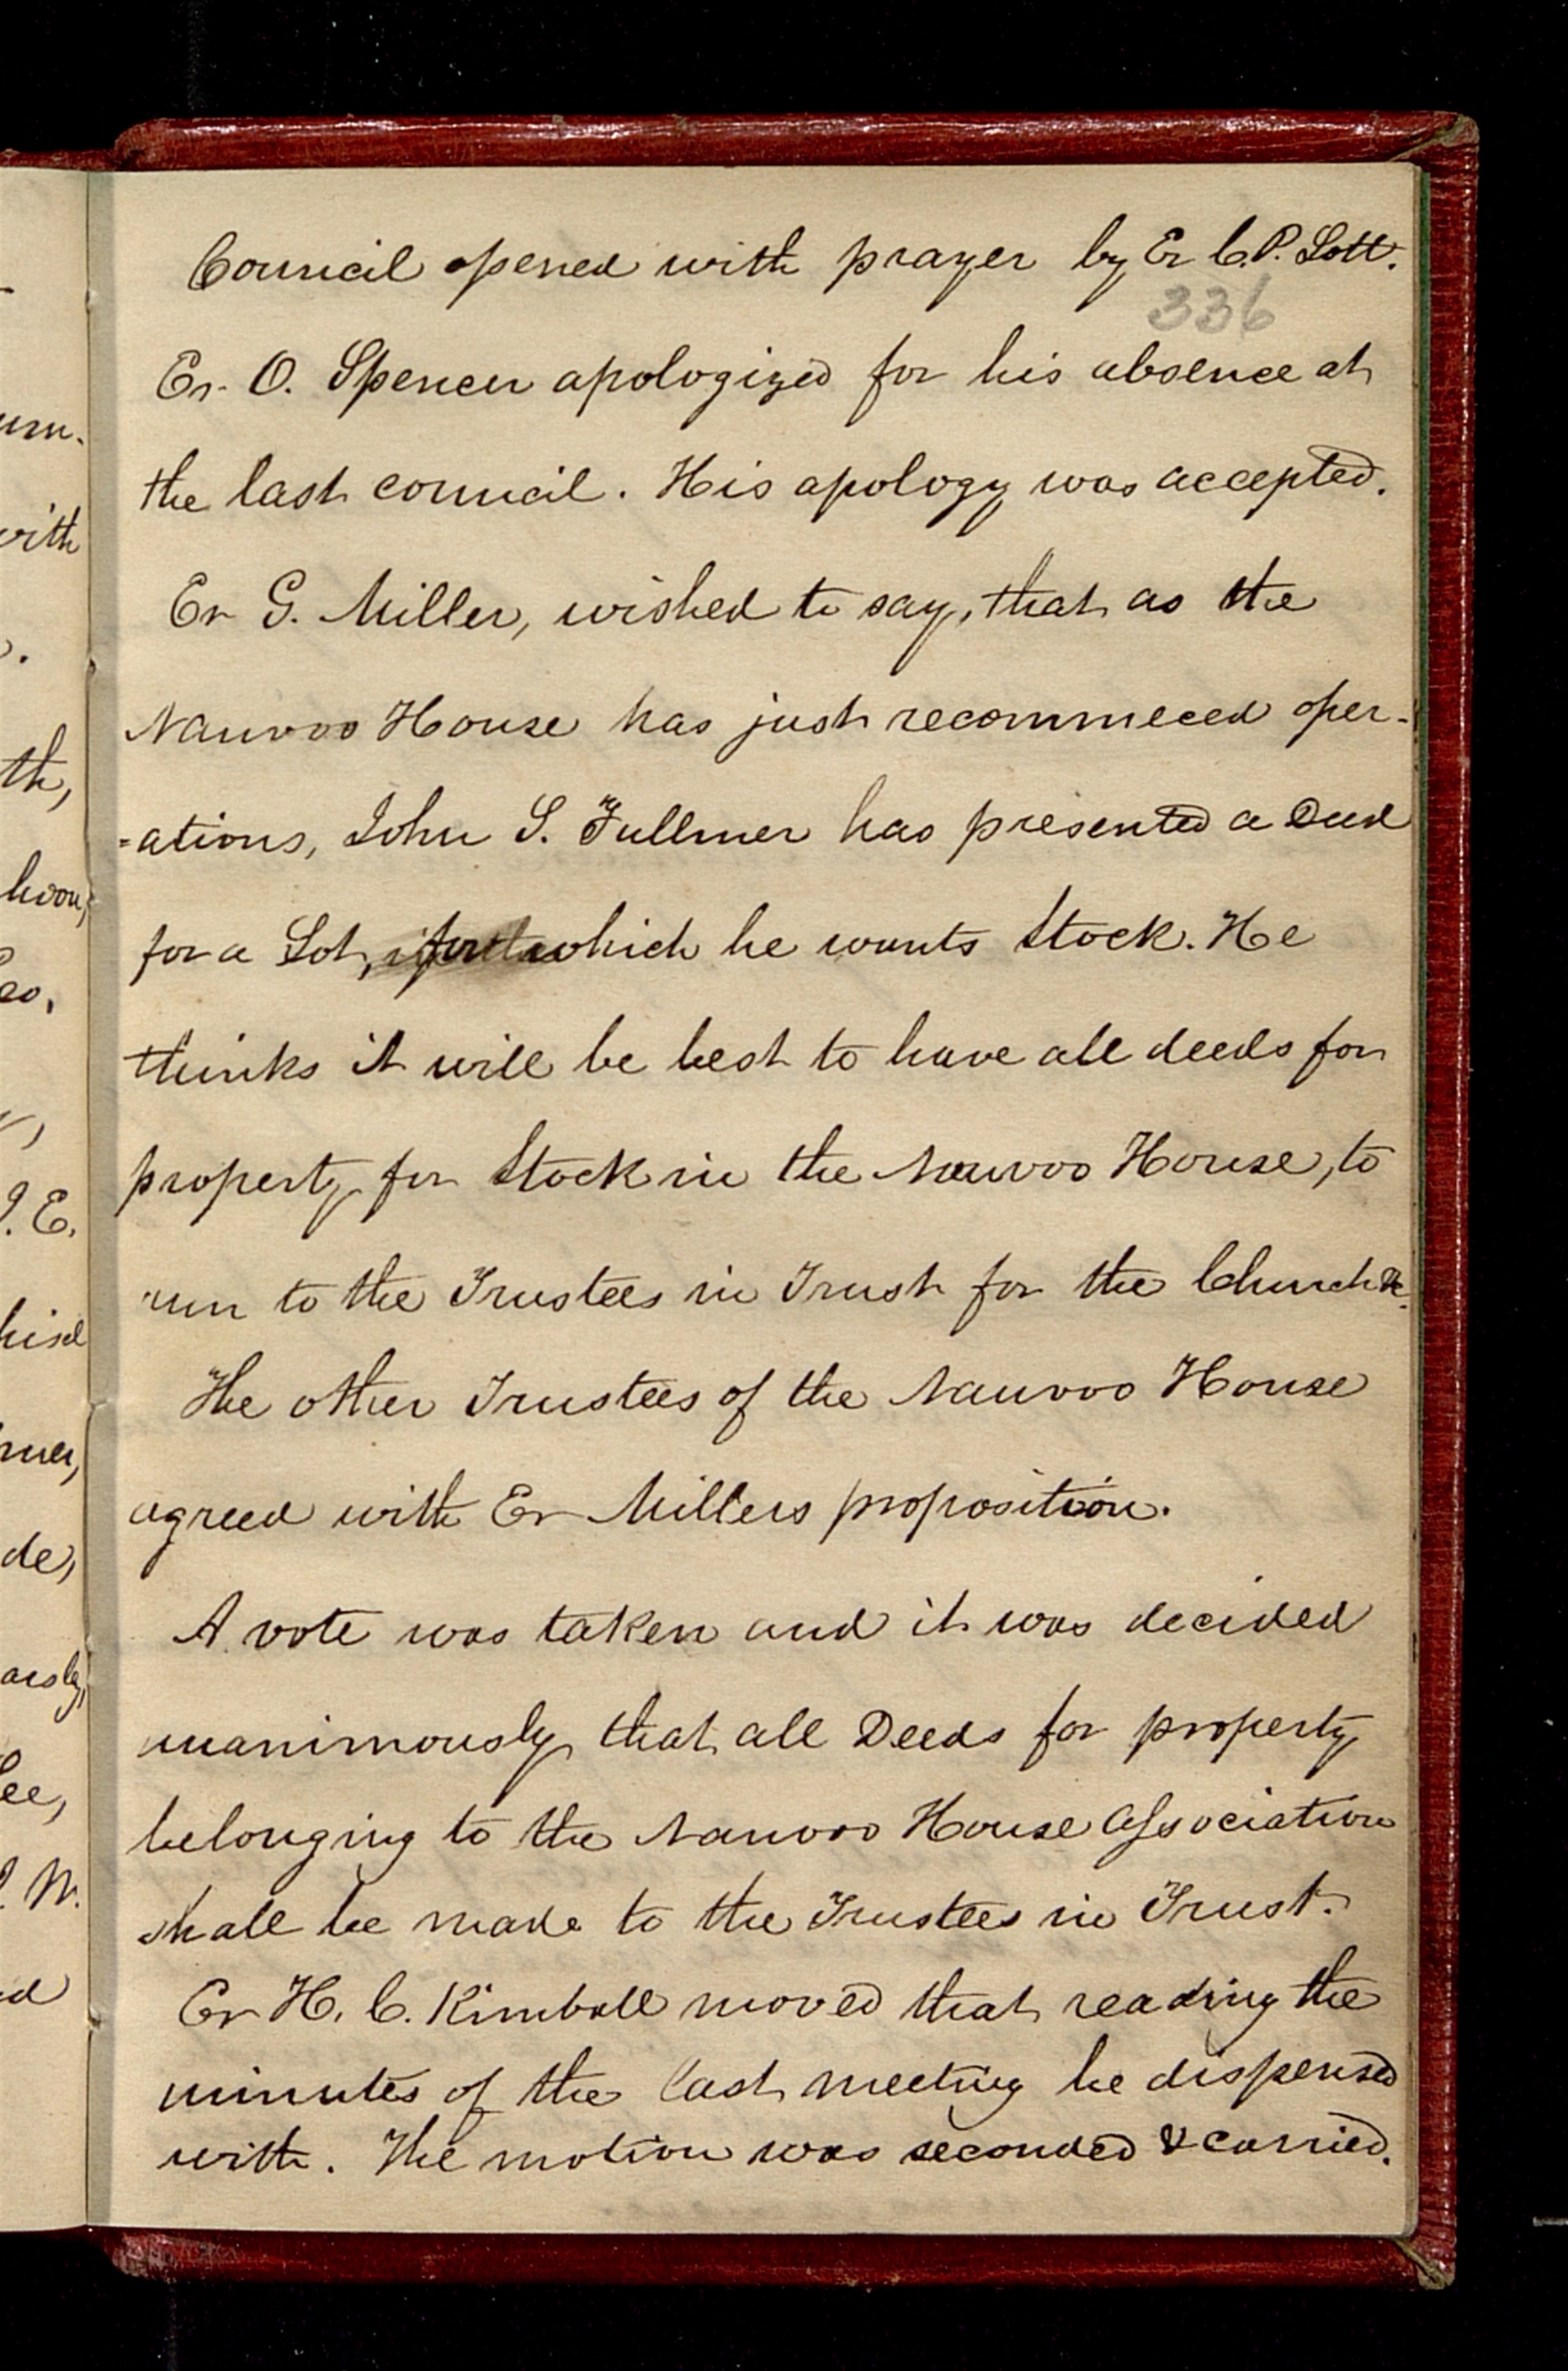 Council opened with prayer by Er C. P. Lott.
336
Er. O. Spencer apologized for his absence at
the last council. His apology was accepted.
Er G. Miller, wished to say, that as the
Nauvoo House has just recommeced oper-
=ations, John S. Fullmer has presented a Deed
for a Lot, for which he wants Stock. He
thinks it will be best to have all deeds for
property for Stock in the Nauvoo House, to
run to the Trustees in Trust for the Church &c.
The other Trustees of the Nauvoo House
agreed with Er Millers proposition.
A vote was taken and it was decided
unanimously that all Deeds for property
belonging to the Nauvoo House Association
shall be made to the Trustees in Trust.
Er H. C. Kimball moved that reading the
minutes of the last meeting be dispensed
with. The motion was seconded & carried.